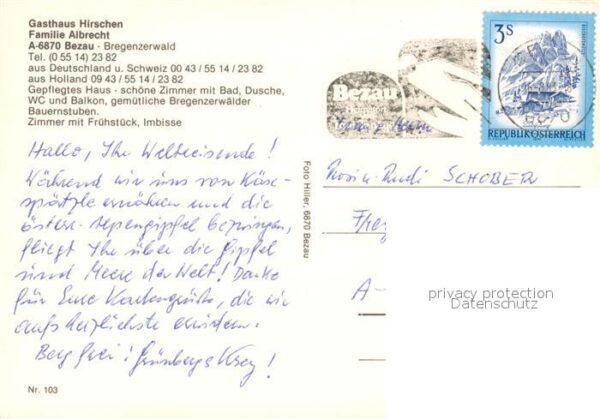 Gasthaus Hirschen
Familie Albrecht
A-6870 Bezau - Bregenzerwald
Tel. (0 55 14) 23 82
aus Deutschland u. Schweiz 00 43 / 55 14 / 23 82
aus Holland 09 43 / 55 14 / 23 82
Gepflegtes Haus - schöne Zimmer mit Bad, Dusche,
WC und Balkon, gemütliche Bregenzerwälder
Bauernstuben.
Zimmer mit Frühstück, Imbisse
Hallo, Ihr Weltreisende!
Während wir uns von Käse-
spätzle ernähren und die
österr. Alpengipfel bezwingen,
fliegt Ihr über die Gipfel
und Meere der Welt! Danke
für Eure Kartengrüße, die wir
aufs herzlichste erwidern.
Berg frei!
Nr. 103
Foto Hiller, 6870 Bezau
Bezau
3S
REPUBLIK ÖSTERREICH
Rudi SCHOBER
A-
privacy protection
Datenschutz